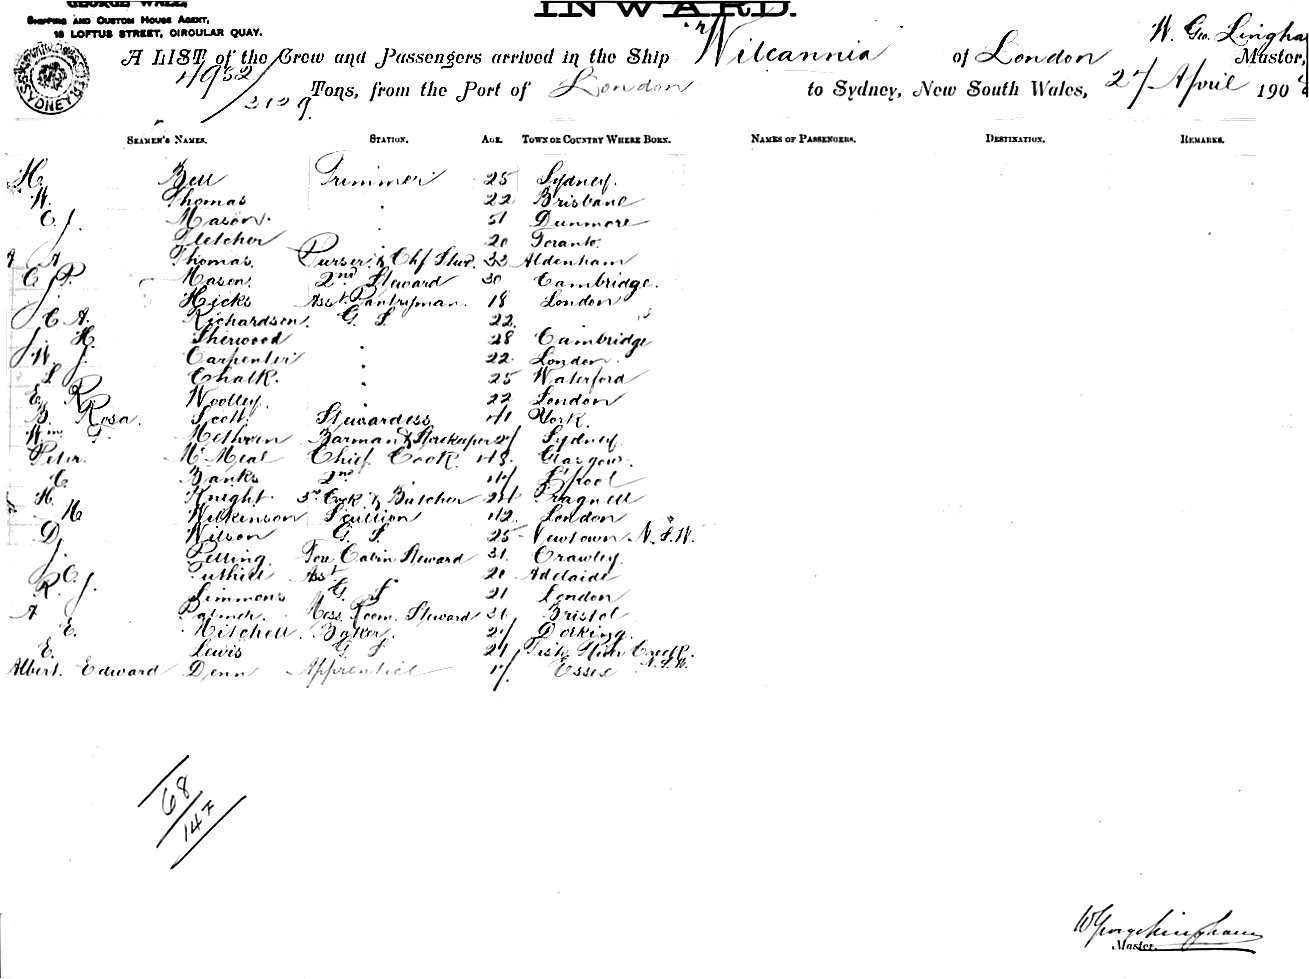 GEORGE WALL,
SHIPPING AND CUSTOM HOUSE AGENT,
18 LOFTUS STREET, CIRCULAR QUAY.
INWARD.
A LIST of the Crew and Passengers arrived in the Ship Wilcannia of London W. Geo. Lingham Master,
4932 / 3129 Tons, from the Port of London to Sydney, New South Wales, 27 April 190
SEAMEN'S NAMES. STATION. AGE. TOWN OR COUNTRY WHERE BORN. NAMES OF PASSENGERS. DESTINATION. REMARKS.
H. Bell Trimmer 25 Sydney.
W. Thomas " 22 Brisbane
C. J. Mason " 51 Dunmore
Fletcher " 20 Toronto.
A Thomas. Purser & Chf Stwd. 33 Aldenham
C. P. Mason. 2nd Steward 30 Cambridge.
J. Hicks Asst. Pantryman. 18 London
C A. Richardson. G. S. 22. "
J. H. Sherwood " 28 Cambridge
W. J. Carpenter " 22 London.
S Chalk. " 25 Waterford
E. R. Woolley. " 22 London
B. Rosa. Scott. Stewardess 41 York.
Wm G. Methven Barman & Storekeeper 27 Sydney.
Peter. McMeal Chief Cook. 48 Glasgow.
C Banks 2nd " L'pool
H. Knight. 3rd Cook & Butcher 24 Pragnell
H Wilkinson Scullion 42 London
D. Wilson G. S 25 Newtown N.S.W.
J. Pilling. Fore Cabin Steward 31. Crawley.
C. Tuthill Asst " 20 Adelaide
R. J. Simmons G S 21 London
A Palmer. Mess Room Steward 36 Bristol
E. Mitchell. Baker. 27 Dorking.
E. Lewis G S 24 Fish River Creek. N.S.W.
Albert. Edward Denn Apprentice 17 Essex
68
147
W George Lingham
Master.